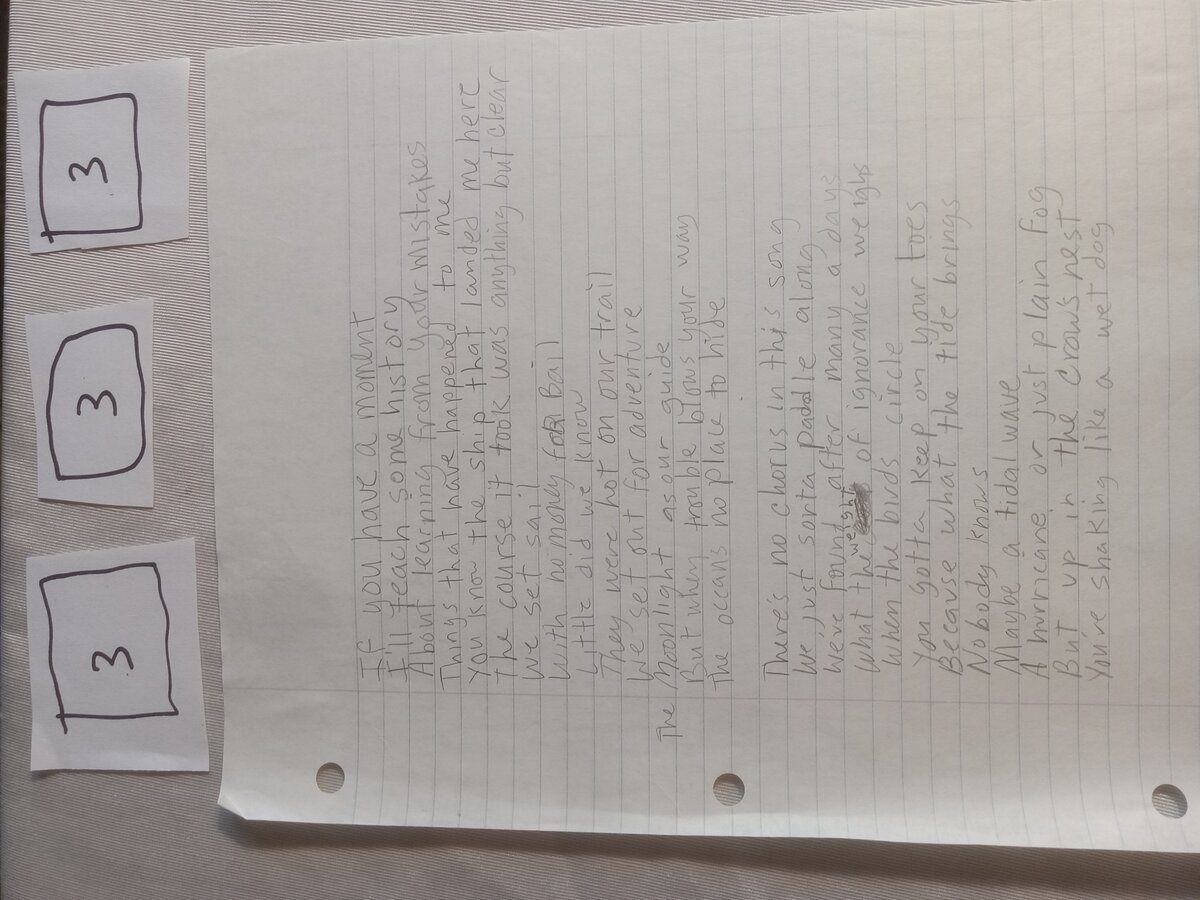 3
3
3
If you have a moment
I'll teach some history
About learning from your mistakes
Things that have happened to me
You know the ship that landed me here
The course it took was anything but clear
We set sail
With no money for Bail
Little did we know
They were hot on our trail
We set out for adventure
The Moonlight as our guide
But when trouble blows your way
The oceans no place to hide
There's no chorus in this song
We just sorta paddle along
We've found after many a days
What the weight of ignorance weighs
When the birds circle
You gotta keep on your toes
Because what the tide brings
Nobody knows
Maybe a tidal wave
A hurricane or just plain fog
But up in the crows nest
You're shaking like a wet dog